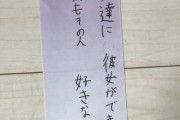 達に 彼女ができ
もその人
好きな